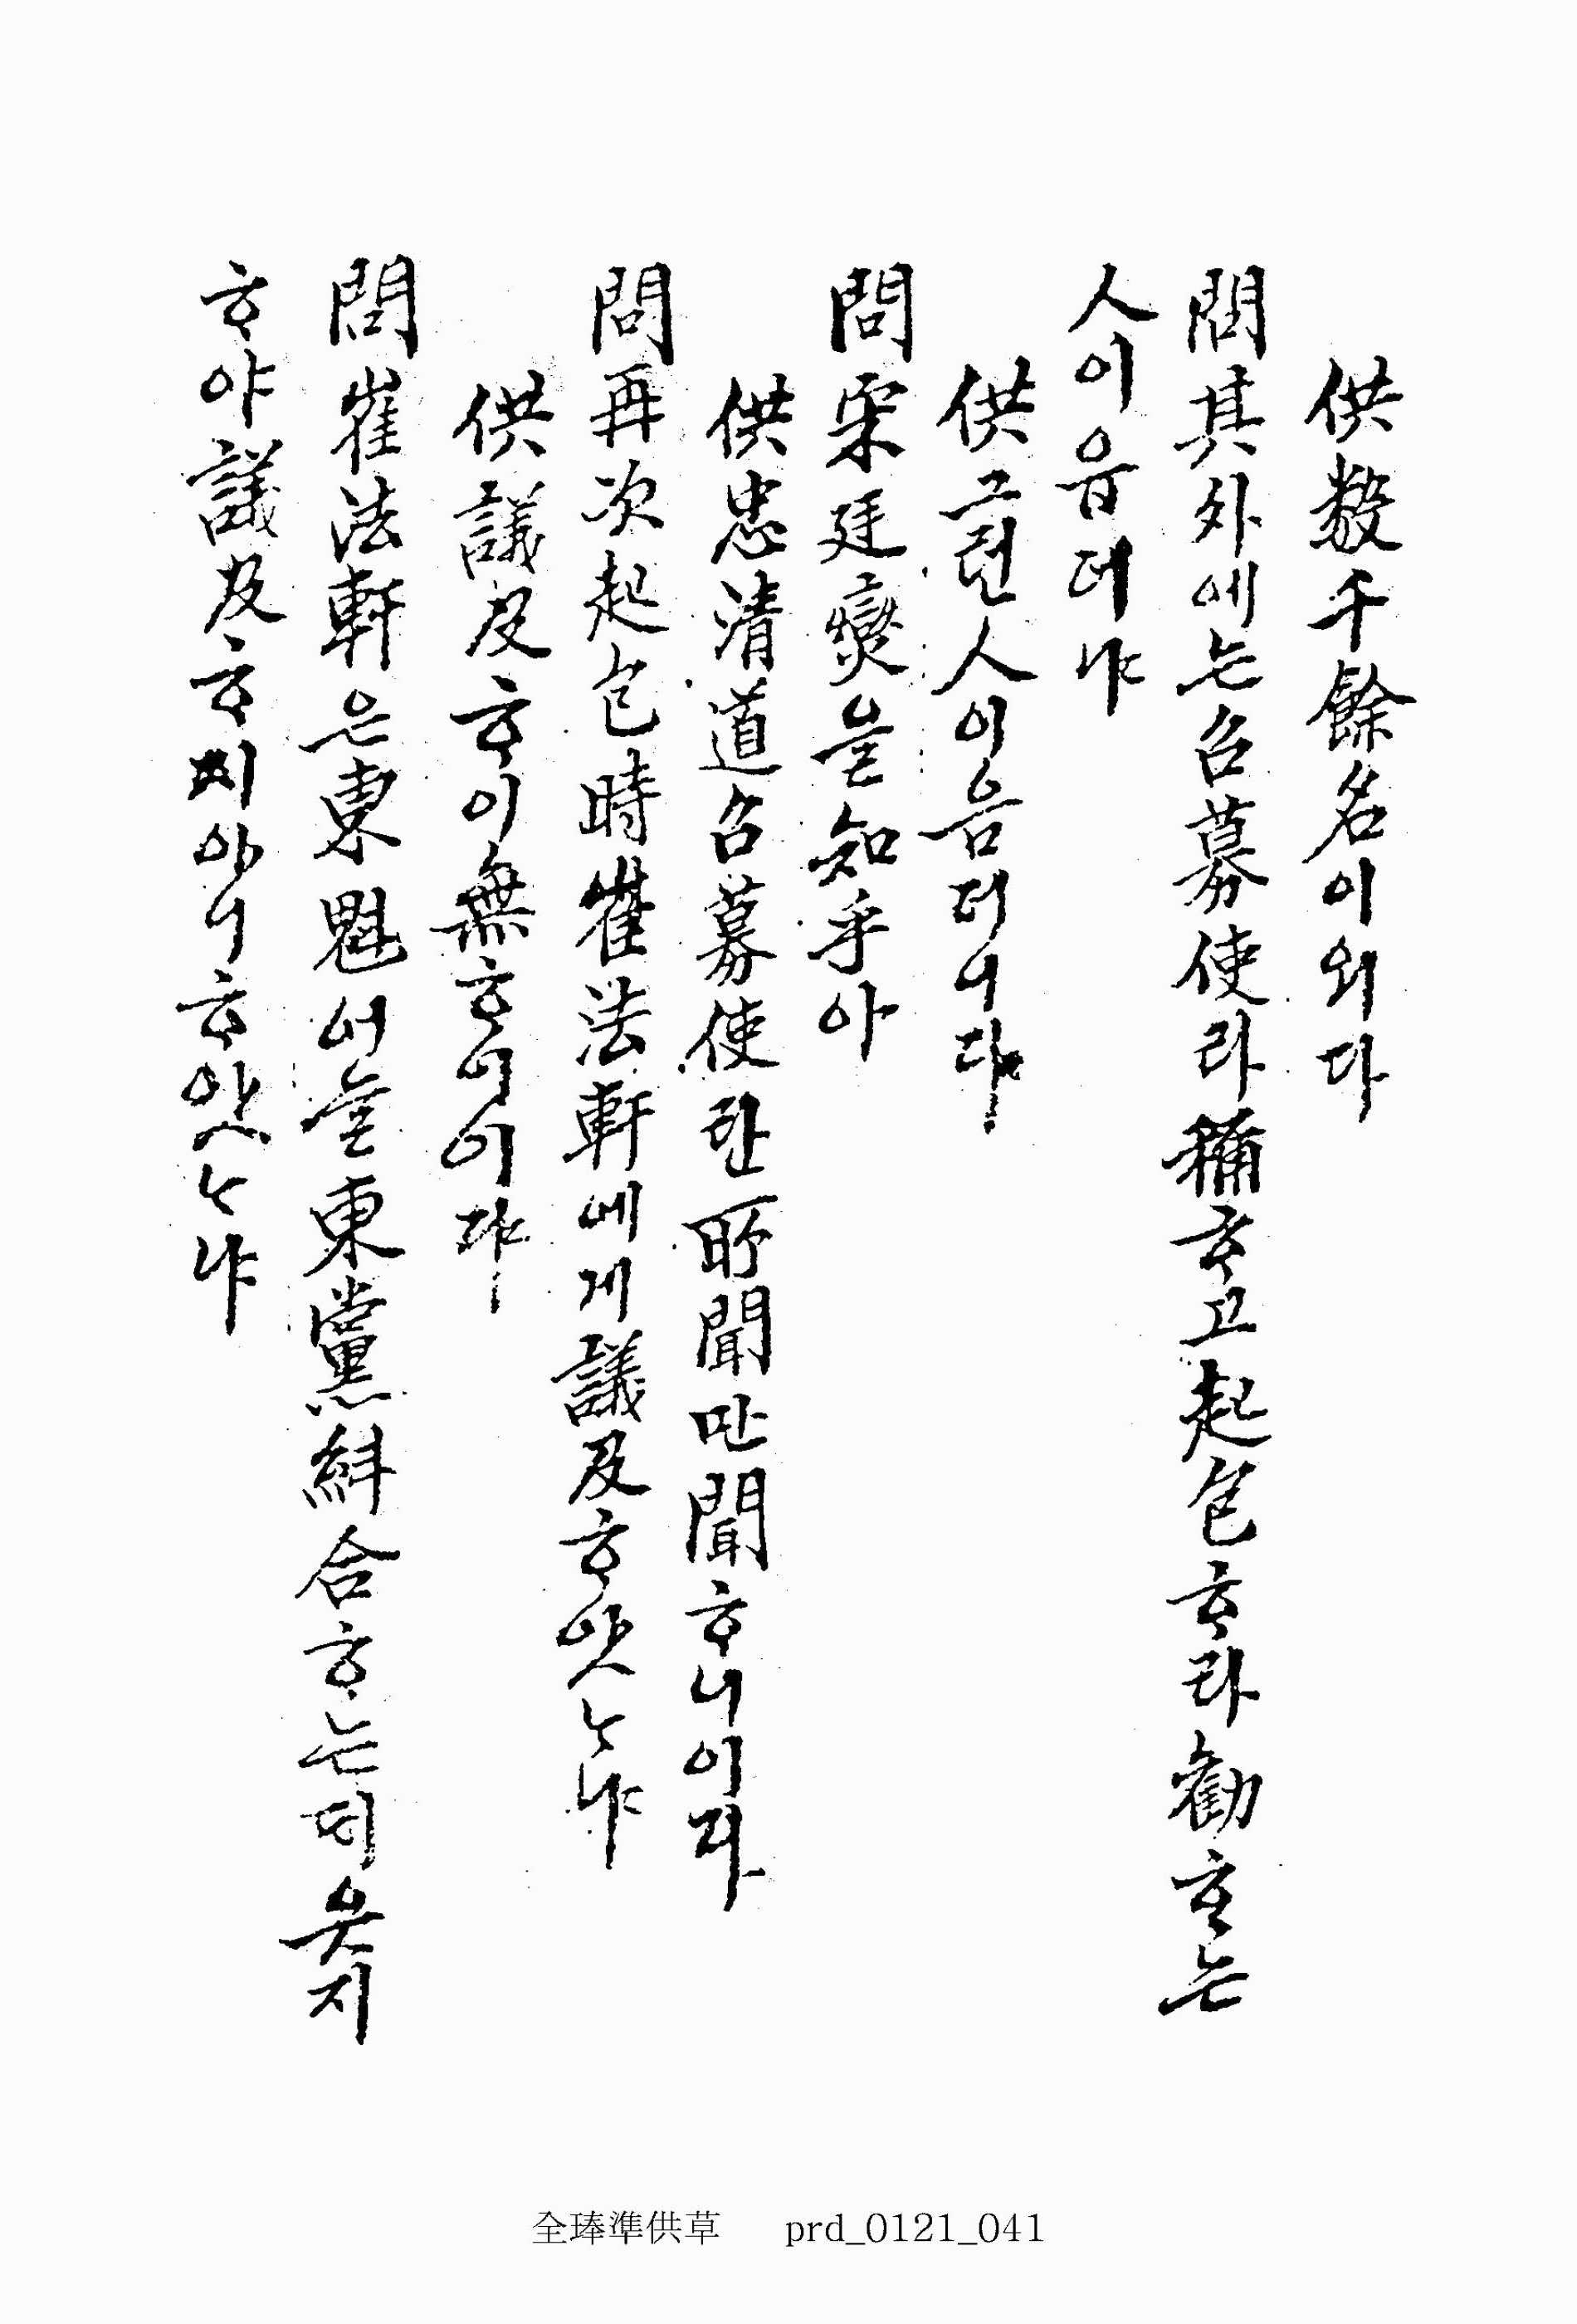 供 數千餘名이외다
問 其外에는 召募使라 稱ᄒᆞ고 起包ᄒᆞ라 勸ᄒᆞᄂᆞᆫ
人이 읍더냐
供 그런 人이 읍더니다
問 宋廷燮을 知乎아
供 忠淸道 召募使란 所聞만 聞ᄒᆞ니이다
問 再次起包時 崔法軒에게 議及ᄒᆞ얏ᄂᆞ냐
供 議及ᄒᆞ이 無ᄒᆞ니이다
問 崔法軒은 東魁어늘 東黨 糾合ᄒᆞᄂᆞᆫ데 웃지
ᄒᆞ야 議及ᄒᆞ지 아니ᄒᆞ얏ᄂᆞ냐
全琫準供草 prd_0121_041